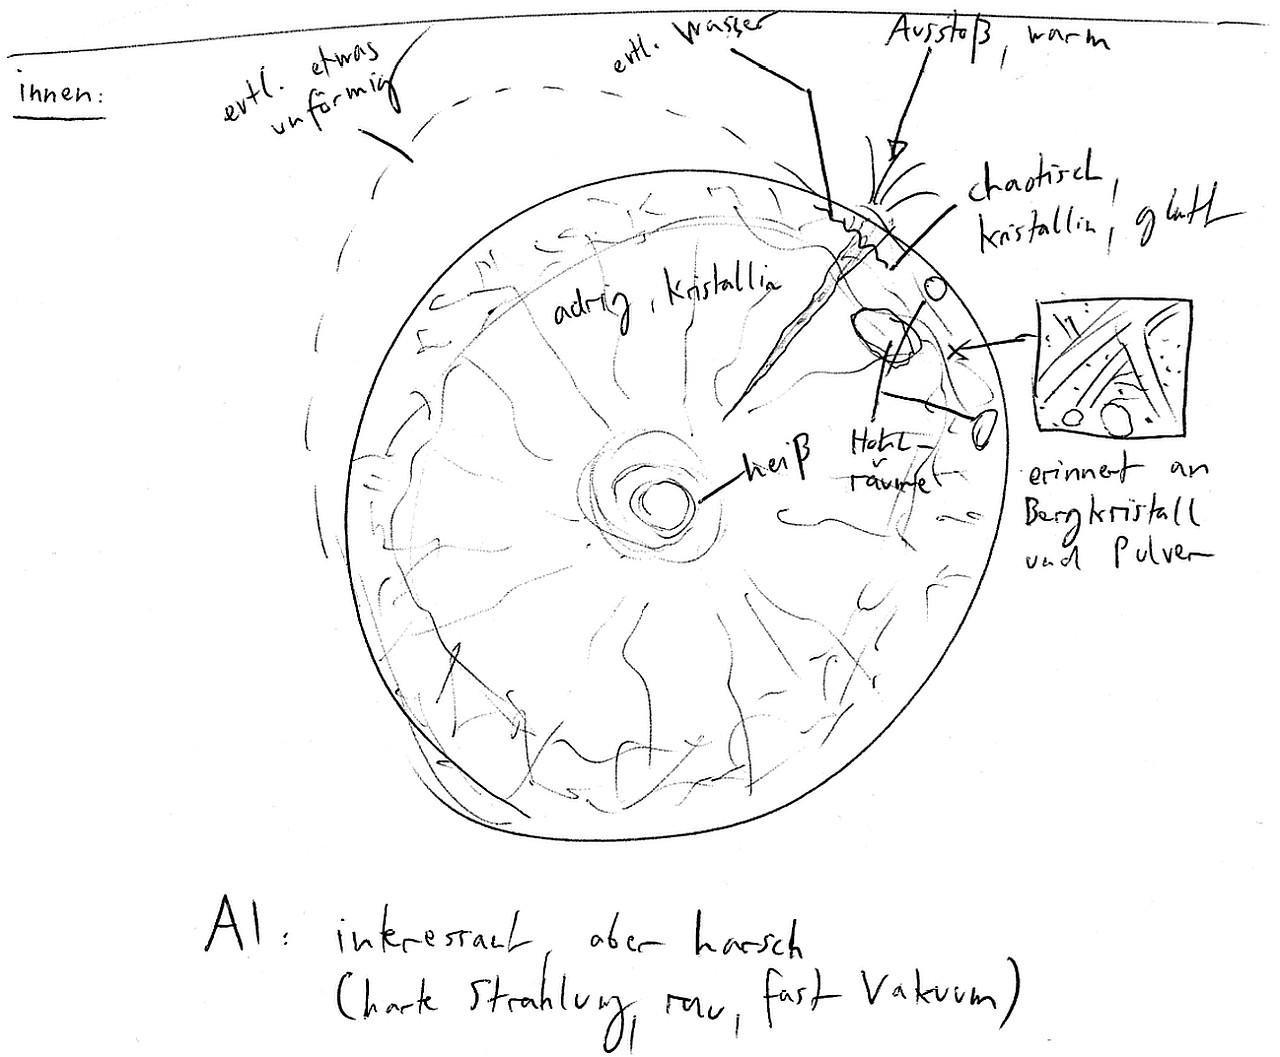 innen:
evtl. etwas
unförmig
evtl. Wasser
Ausstoß, warm
chaotisch,
kristallin, glatt
adrig, kristallin
heiß
Hohl-
räume
erinnert an
Bergkristall
und Pulver
AI: interessant, aber harsch
(harte Strahlung, rau, fast Vakuum)